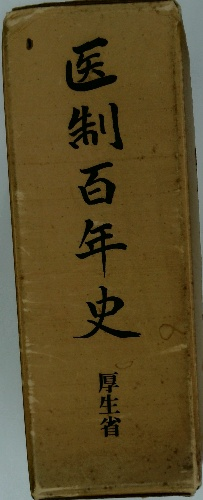 医制百年史
厚生省